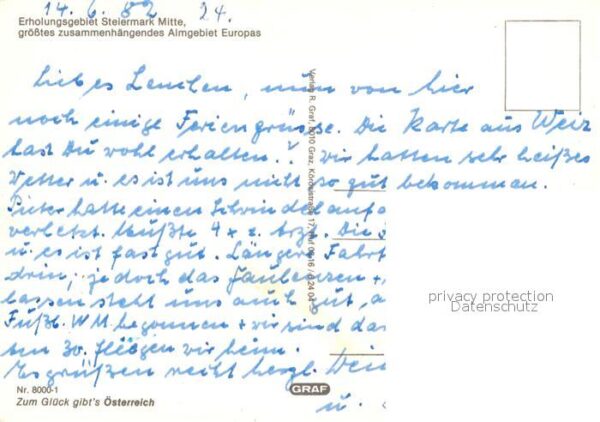 14. 6. 82 24.
Erholungsgebiet Steiermark Mitte,
größtes zusammenhängendes Almgebiet Europas
Liebes Lenchen, nun von hier
noch einige Feriengrüsse. Die Karte aus Weiz
hast Du wohl erhalten.? Wir hatten sehr heißes
Wetter u. es ist uns nicht so gut bekommen.
Peter hatte einen Schwindelanfa
verletzt. Mußte 4 x z. Arzt. Die
u. es ist fast gut. Längere Fahrt
drin, jedoch das Faulenzen +
lassen steht uns auch gut, a
Fußb. W M begonnen + wir sind da
ten 30. fliegen wir heim.
Es grüßen recht herzl. Dein
u.
Verlag R. Graf, 8010 Graz,
privacy protection
Datenschutz
Nr. 8000-1
GRAF
Zum Glück gibt's Österreich